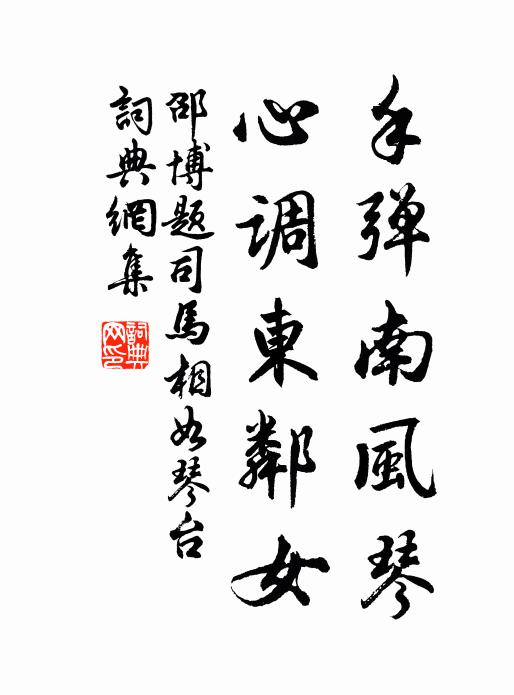 手弹南風琴
心調東鄰女
邵博题司馬相如琴台
詞典網集
詞典网印